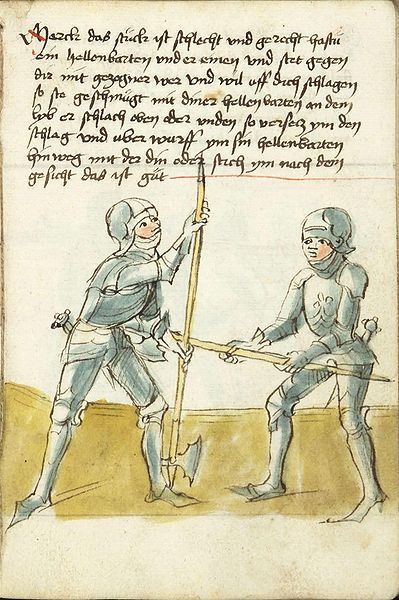 Merck das stuck ist schlecht und gerecht hastu
ein hellenbarten und er einen und stet gegen
dir mit gezogner wer und wil uff dich schlagen
so ste geschmügt mit diner hellenbarten an dem
lyb er schlach oben oder unden so versetz ym den
schlag und uber wurff ym sin hellenbarten
hin weg mit der din oder stich ym nach dem
gesicht das ist güt